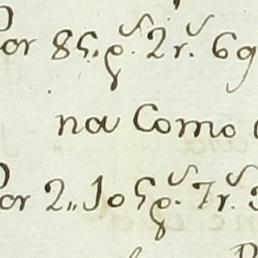 Por 85. p.s 2 r.s 69
na Como
Por 2,, Jo 5 p.s 7 r.s